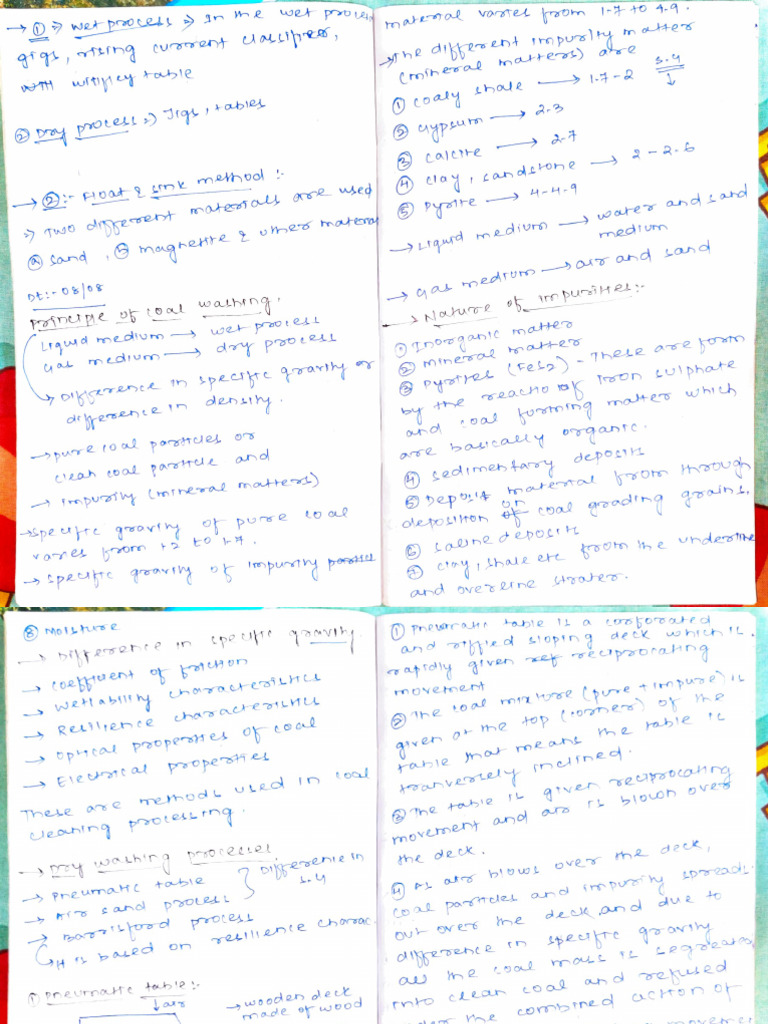 → ① ⇒ wet process ⇒ In the wet process
gigs, rising current classifier,
with wilfley table
② Dry process ⇒ Jigs, tables
→ ② :- Float & sink method :-
⇒ Two different materials are used
ⓐ sand, ⓑ magnetite & other material
Dt:- 08/08
Principle of coal washing.
Liquid medium → wet process
Gas medium → dry process
→ Difference in specific gravity or
difference in density.
→ pure coal particles or
clean coal particle and
→ impurity (mineral matters)
→ specific gravity of pure coal
varies from 1.2 to 1.7.
→ specific gravity of impurity
material varies from 1.7 to 4.9.
→ The different impurity matter
(mineral matters) are
① coaly shale → 1.7-2 s.g ↓
② Gypsum → 2.3
③ calcite → 2.7
④ clay, sandstone → 2-2.6
⑤ pyrite → 4-4.9
→ Liquid medium → water and sand
medium
→ Gas medium → air and sand
→ Nature of impurities:-
① Inorganic matter
② mineral matter
③ pyrites (FeS2) - These are form
by the reacto of iron sulphate
and coal forming matter which
are basically organic.
④ sedimentary deposits
⑤ Deposit material from through
deposition of coal grading grains.
⑥ saline deposits
⑦ clay, shale etc from the underline
and overline strater.
⑧ Moisture
→ Difference in specific gravity.
→ coefficient of friction
→ wettability characteristics
→ Resilience characteristics
→ optical properties of coal
→ Electrical properties
These are methods used in coal
cleaning processing.
→ Dry washing processes
→ pneumatic table } Difference in
→ Air sand process s.g
→ Barrisford process
↳ It is based on resilience charac.
① pneumatic table :-
↓ air → wooden deck
made of wood
① Pneumatic table is a corforated
and riffled sloping deck which is
rapidly given reciprocating
movement
② The coal mixture (pure + impure) is
given at the top (corner) of the
table that means the table is
tranversely inclined.
③ The table is given reciprocating
movement and air is blown over
the deck.
④ As air blows over the deck,
coal particles and impurity spreads
out over the deck and due to
difference in specific gravity
all the coal mass is segreates
into clean coal and refused
under the combined action of